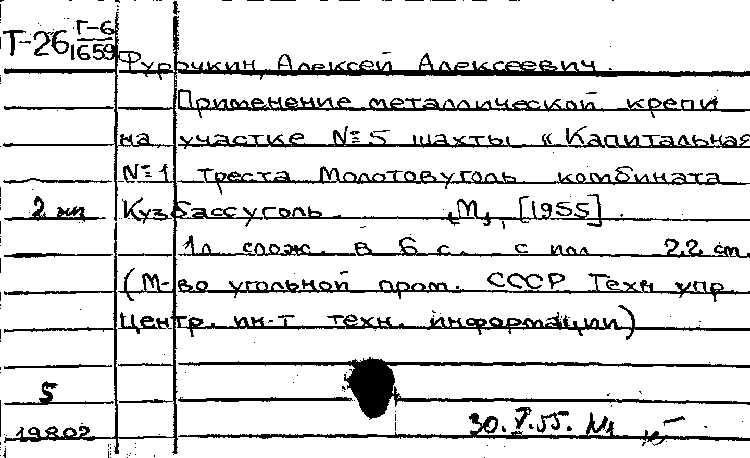 Т-26 Г-6
1659
Фурочкин, Алексей Алексеевич.
Применение металлической крепи
на участке №5 шахты "Капитальная
№1 треста Молотовуголь комбината
2 экз Кузбассуголь. "М", [1955].
1л слож. в 6 с. с ил 22 см.
(М-во угольной пром. СССР Техн упр.
Центр. ин-т техн. информации)
5
30.V.55.
19802